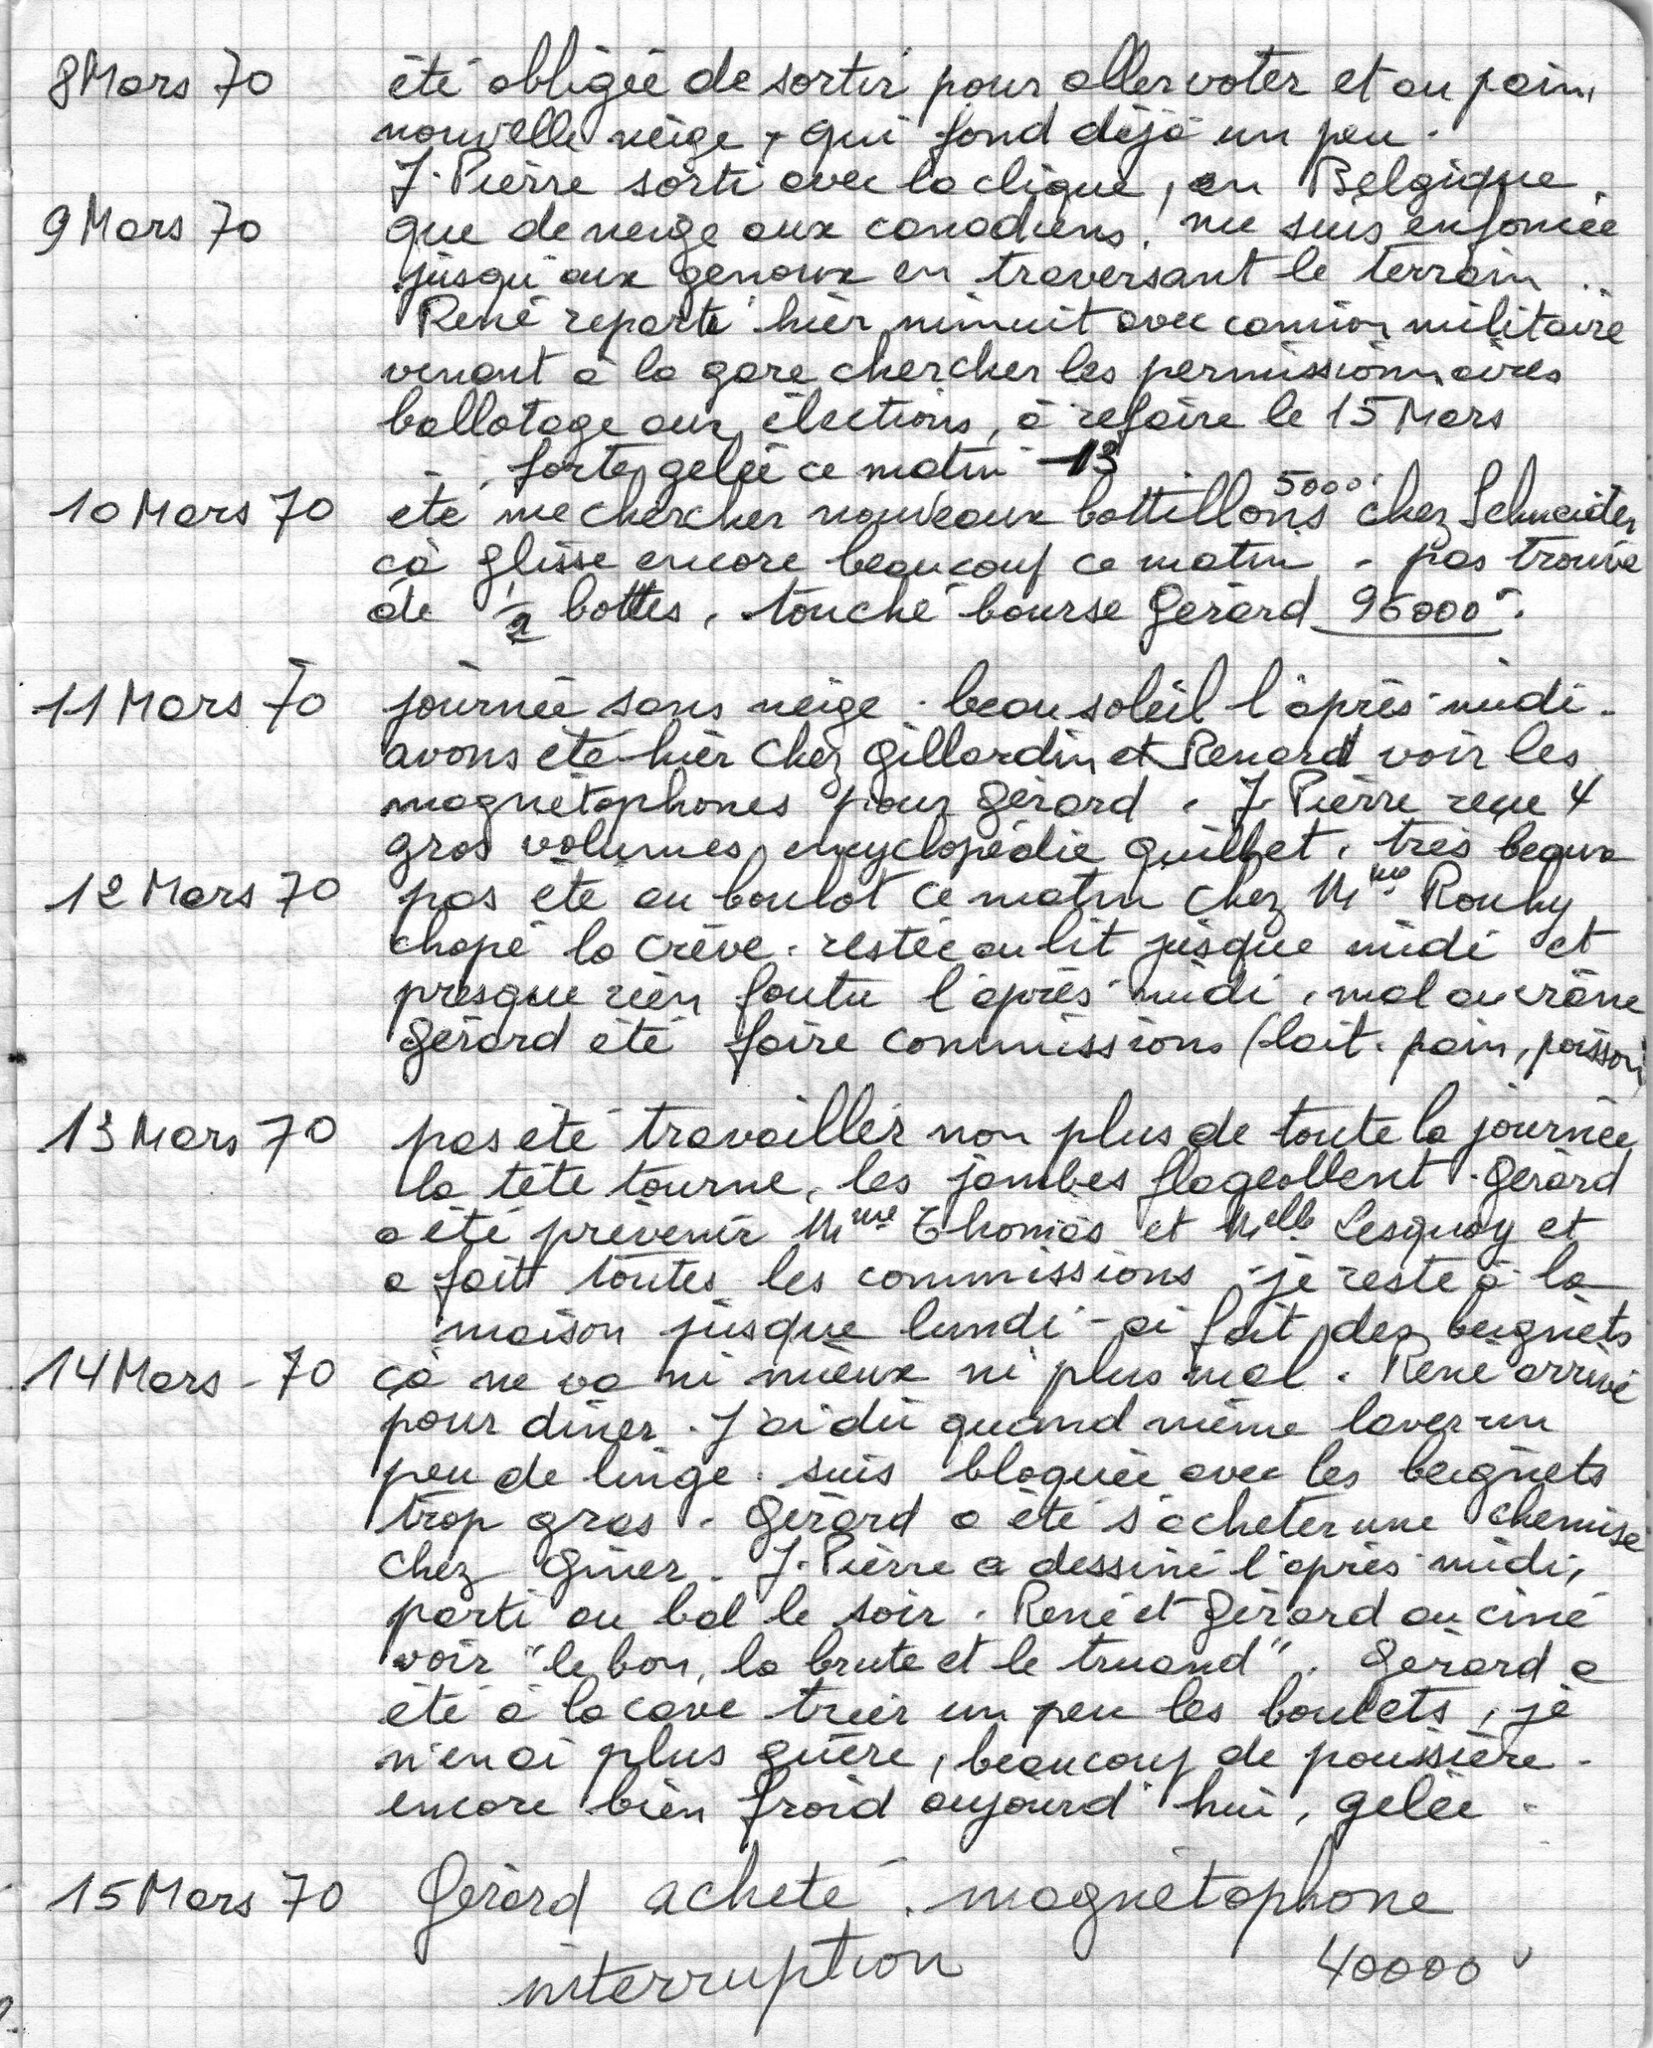 8 Mars 70 été obligée de sortir pour aller voter et au pain,
nouvelle neige, qui fond déjà un peu.
J. Pierre sorti avec la clique, en Belgique.
9 Mars 70 que de neige aux canadiens, me suis enfoncée
jusqu'aux genoux en traversant le terrain..
René reparti hier minuit avec camion militaire
venant à la gare chercher les permissionnaires
ballotage aux élections, à refaire le 15 Mars
forte gelée ce matin -13
5000
10 Mars 70 été me chercher nouveaux bottillons chez Schneider
çà glisse encore beaucoup ce matin - pas trouvé
de 1/2 bottes, touché bourse Gérard 96000
11 Mars 70 journée sans neige - beau soleil l'après-midi -
avons été hier chez Gillardin et Renard voir les
magnétophones pour Gérard. J. Pierre reçu 4
gros volumes encyclopédie Quillet, très beaux
12 Mars 70 pas été au boulot ce matin chez Mme Rouhy
chopé la crève - restée au lit jusque midi et
presque rien foutu l'après-midi, mal au crâne
Gérard été faire commissions (lait, pain, poisson)
13 Mars 70 pas été travailler non plus de toute la journée
la tête tourne, les jambes flageollent - Gérard
a été prévenir Mme Thomas et Melle Lesquoy et
a fait toutes les commissions, je reste à la
maison jusque lundi - ai fait des beignets
14 Mars - 70 çà ne va ni mieux ni plus mal. René arrivé
pour diner. J'ai dû quand même laver un
peu de linge. suis bloquée avec les beignets
trop gras. Gérard a été s'acheter une chemise
chez Giner. J. Pierre a dessiné l'après-midi,
parti au bal le soir. René et Gérard au ciné
voir "le bon, la brute et le truand". Gérard a
été à la cave trier un peu les boulets, je
n'en ai plus guère, beaucoup de poussière -
encore bien froid aujourd'hui, gelée -
15 Mars 70 Gérard acheté magnétophone
interruption 40000